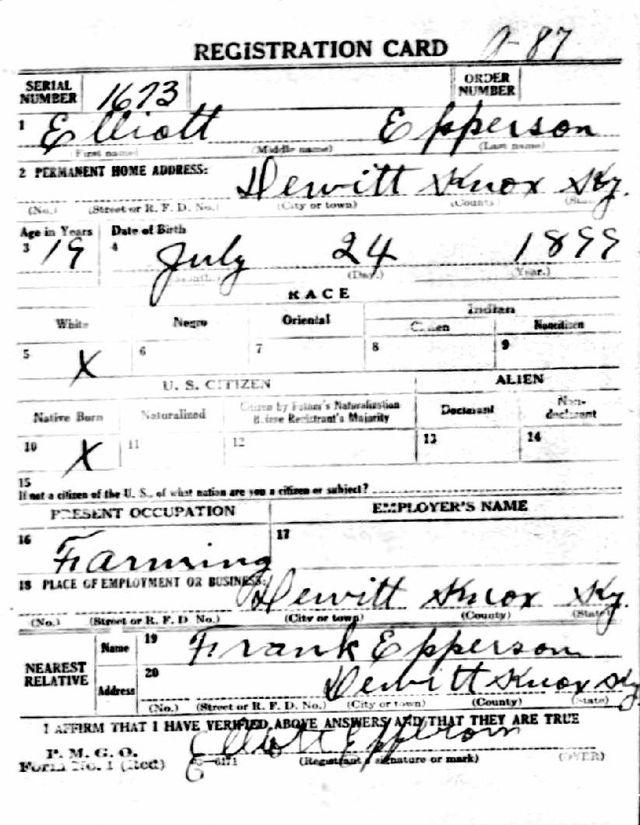 REGISTRATION CARD
SERIAL NUMBER 1673 ORDER NUMBER
1 Elliott Epperson
(First name) (Middle name) (Last name)
2 PERMANENT HOME ADDRESS: Dewitt Knox Ky.
(No.) (Street or R. F. D. No.) (City or town) (County) (State)
Age in Years Date of Birth
3 19 4 July 24 1899
(Month.) (Day.) (Year.)
RACE
White Negro Oriental Indian
Citizen Noncitizen
5 X 6 7 8 9
U. S. CITIZEN ALIEN
Native Born Naturalized Citizen by Father's Naturalization Before Registrant's Majority Declarant Non-declarant
10 X 11 12 13 14
15
If not a citizen of the U. S., of what nation are you a citizen or subject?
PRESENT OCCUPATION EMPLOYER'S NAME
16 Farming 17
18 PLACE OF EMPLOYMENT OR BUSINESS: Dewitt Knox Ky.
(No.) (Street or R. F. D. No.) (City or town) (County) (State)
NEAREST RELATIVE Name 19 Frank Epperson
Address 20 Dewitt Knox Ky
(No.) (Street or R. F. D. No.) (City or town) (County) (State)
I AFFIRM THAT I HAVE VERIFIED ABOVE ANSWERS AND THAT THEY ARE TRUE
P. M. G. O.
Form No. 1 (Red) Elliott Epperson
(Registrant's signature or mark) (OVER)